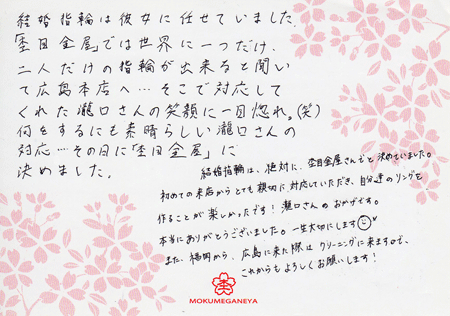 結婚指輪は彼女に任せていました。
「杢目金屋」では世界に一つだけ、
二人だけの指輪が出来ると聞い
て広島本店へ…そこで対応して
くれた瀧口さんの笑顔に一目惚れ。(笑)
何をするにも素晴らしい瀧口さんの
対応…その日に「杢目金屋」に
決めました。
結婚指輪は、絶対に、杢目金屋さんでと決めていました。
初めての来店からとても親切に対応していただき、自分達のリングを
作ることが楽しかったです！瀧口さんのおかげです。
本当にありがとうございました。一生大切にします
また、福岡から、広島に来た際はクリーニングに来ますので、
これからもよろしくお願いします！
MOKUMEGANEYA